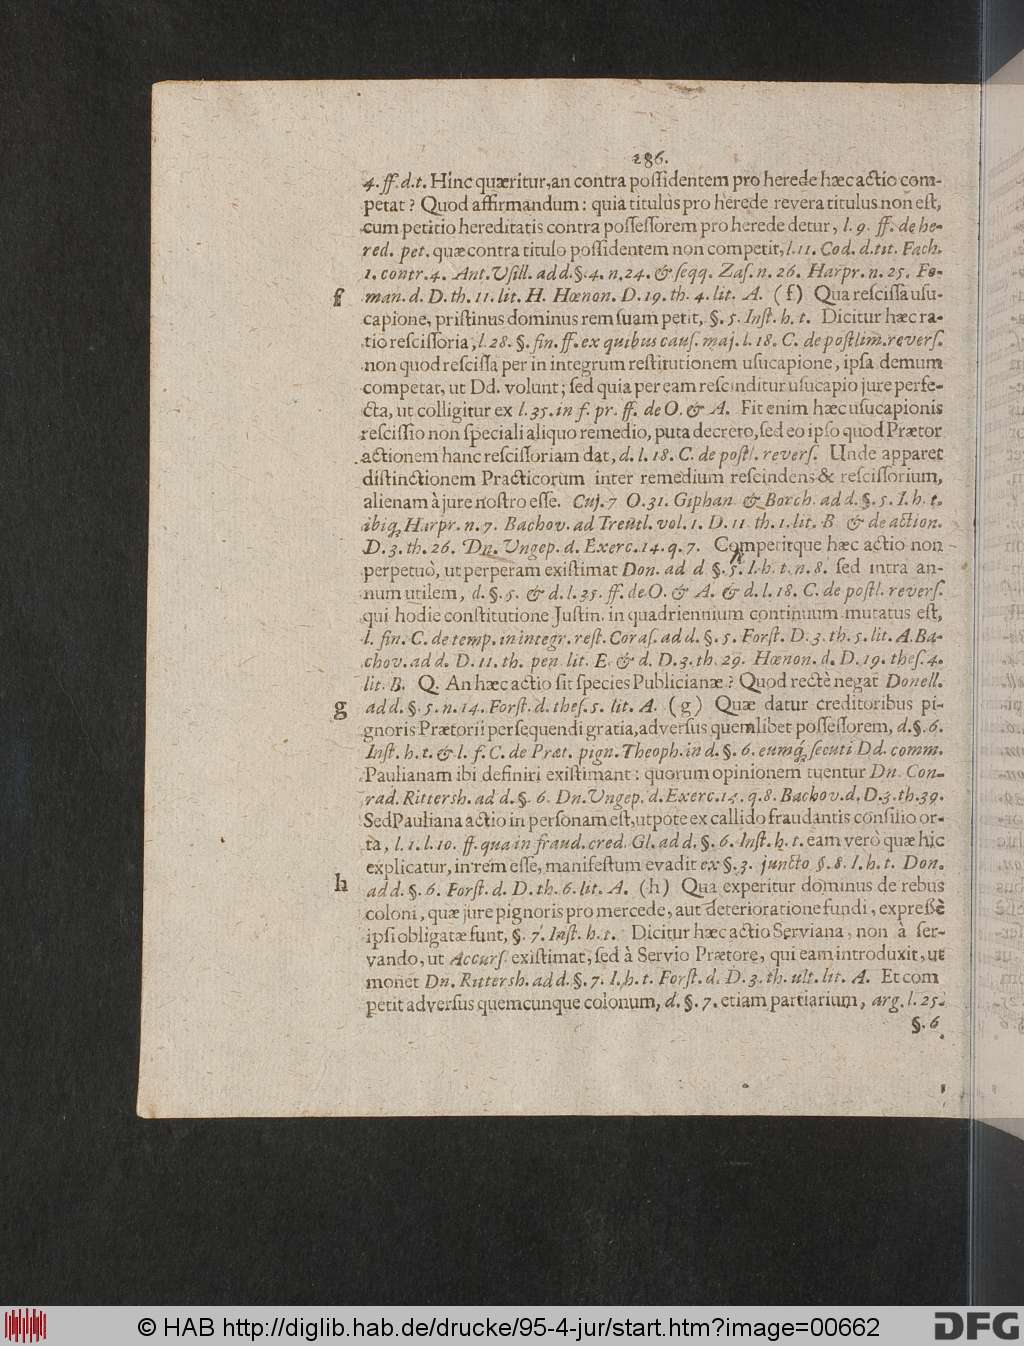 286.
4. ff. d. t. Hinc quæritur, an contra possidentem pro herede hæc actio com-
petat? Quod affirmandum: quia titulus pro herede revera titulus non est,
cum petitio hereditatis contra possessorem pro herede detur, l. 9. ff. de he-
red. pet. quæ contra titulo possidentem non competit, l. 11. Cod. d. tit. Fach.
1. contr. 4. Ant. Vsill. ad d. §. 4. n. 24. & seqq. Zas. n. 26. Harpr. n. 25. Fo-
f man. d. D. th. 11. lit. H. Hœnon. D. 19. th. 4. lit. A. (f) Qua rescissa usu-
capione, pristinus dominus rem suam petit, §. 5. Inst. h. t. Dicitur hæc ra-
tio rescissoria, l. 28. §. fin. ff. ex quibus caus. maj. l. 18. C. de postlim. revers.
non quod rescissa per in integrum restitutionem usucapione, ipsa demum
competat, ut Dd. volunt; sed quia per eam rescinditur usucapio jure perfe-
cta, ut colligitur ex l. 35. in f. pr. ff. de O. & A. Fit enim hæc usucapionis
rescissio non speciali aliquo remedio, puta decreto, sed eo ipso quod Prætor
actionem hanc rescissoriam dat, d. l. 18. C. de postl. revers. Unde apparet
distinctionem Practicorum inter remedium rescindens & rescissorium,
alienam à jure nostro esse. Cuj. 7 O. 31. Giphan & Borch. ad d. §. 5. I. h. t.
ibiq; Harpr. n. 7. Bachov. ad Treutl. vol. 1. D. 11 th. 1. lit. B & de action.
D. 3. th. 26. Dn. Ungep. d. Exerc. 14. q. 7. Competitque hæc actio non
perpetuò, ut perperam existimat Don. ad d §. 5. I. h. t. n. 8. sed intra an-
num utilem, d. §. 5. & d. l. 35. ff. de O. & A. & d. l. 18. C. de postl. revers.
qui hodie constitutione Justin. in quadriennium continuum mutatus est,
l. fin. C. de temp. in integr. rest. Coras. ad d. §. 5. Forst. D. 3. th. 5. lit. A. Ba-
chov. ad d. D. 11. th. pen lit. E. & d. D. 3. th. 29. Hœnon. d. D. 19. thes. 4.
lit. B. Q. An hæc actio sit species Publicianæ? Quod rectè negat Donell.
g ad d. §. 5. n. 14. Forst. d. thes. 5. lit. A. (g) Quæ datur creditoribus pi-
gnoris Prætorii persequendi gratia, adversus quemlibet possessorem, d. §. 6.
Inst. h. t. & l. f. C. de Præt. pign. Theoph. in d. §. 6. eumq; secuti Dd. comm.
Paulianam ibi definiri existimant: quorum opinionem tuentur Dn. Con-
rad. Rittersh. ad d. §. 6. Dn. Ungep. d. Exerc. 14. q. 8. Bachov. d. D. 3. th. 39.
Sed Pauliana actio in personam est, utpote ex callido fraudantis consilio or-
ta, l. 1. l. 10. ff. qua in fraud. cred. Gl. ad d. §. 6. Inst. h. t. eam verò quæ hîc
explicatur, in rem esse, manifestum evadit ex §. 3. juncto §. 8. I. h. t. Don.
h ad d. §. 6. Forst. d. D. th. 6. lit. A. (h) Qua experitur dominus de rebus
coloni, quæ jure pignoris pro mercede, aut deterioratione fundi, expressè
ipsi obligatæ sunt, §. 7. Inst. h. t. Dicitur hæc actio Serviana, non à ser-
vando, ut Accurs. existimat, sed à Servio Prætore, qui eam introduxit, ut
monet Dn. Rittersh. ad d. §. 7. I. h. t. Forst. d. D. 3. th. ult. lit. A. Et com
petit adversus quemcunque colonum, d. §. 7. etiam partiarium, arg. l. 25.
§. 6
© HAB http://diglib.hab.de/drucke/95-4-jur/start.htm?image=00662
DFG